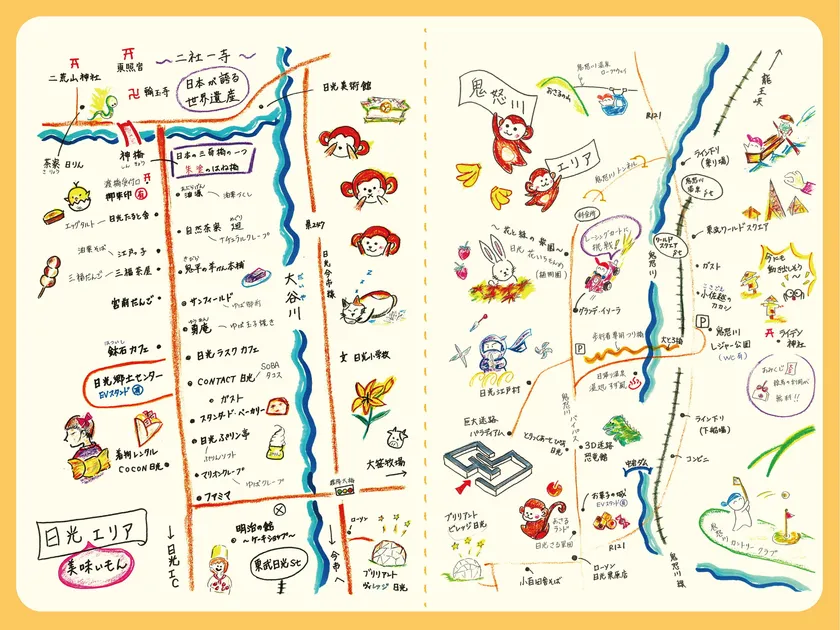 二荒山神社
東照宮
二社一寺
日本が誇る
世界遺産
輪王寺
日光美術館
茶寮 日りん
神橋
日本の三奇橋の一つ
朱塗のはね橋
御朱印 有
油源
エッグタルト
日光たまり会
自然茶寮 廻
ナチュラルクレープ
県247
油源そば
江戸っ子
三福だんご
三福茶屋
鬼平の羊かん本舗
大谷川
日光今市線
宮前だんご
サンフィールド
鉢石カフェ
日光ラスクカフェ
文 日光小学校
日光郷土センター
EVスタンド
CONTACT 日光
SOBA
タコス
ガスト
スタンダードベーカリー
日光ぷりん亭
ぷりんソフト
着物レンタル
COCON 日光
マリオンクレープ
ゆばクレープ
大笹牧場
ファミマ
日光エリア
美味いもん
↓日光IC
明治の館
〜ケーキショップ〜
東武日光St
↓今市へ
ローソン
ブリリアント
ヴィレッジ 日光
鬼怒川
エリア
鬼怒川温泉
ロープウェイ
おさるの山
R121
龍王峡
ライン下り
(乗り場)
鬼怒川トンネル
鬼怒川
温泉 St
料金所
東武ワールドスクエア
ワールド
スクエア
St
〜花と緑の楽園〜
日光花いちもんめ
レーシングカートに
挑戦!
鬼怒川
ガスト
今にも
動き出しそう
小佐越の
カカシ
グランデ・イソーラ
P
P
鬼怒川
レジャー公園
(WC有)
ライデン
神社
歩行者専用つり橋
日光江戸村
おみくじ
無料!!
鬼怒川バイパス
ライン下り
(下船場)
巨大迷路
パラディアム
とりっくあーとぴあ
日光
3D迷路
恐竜館
コンビニ
中岩ダム
お菓子の城
EVスタンド
ブリリアント
ビレッジ日光
おさる
ランド
日光さる軍団
R121
鬼怒川カントリークラブ
小百田舎そば
ローソン
日光栗原店
鬼怒川線